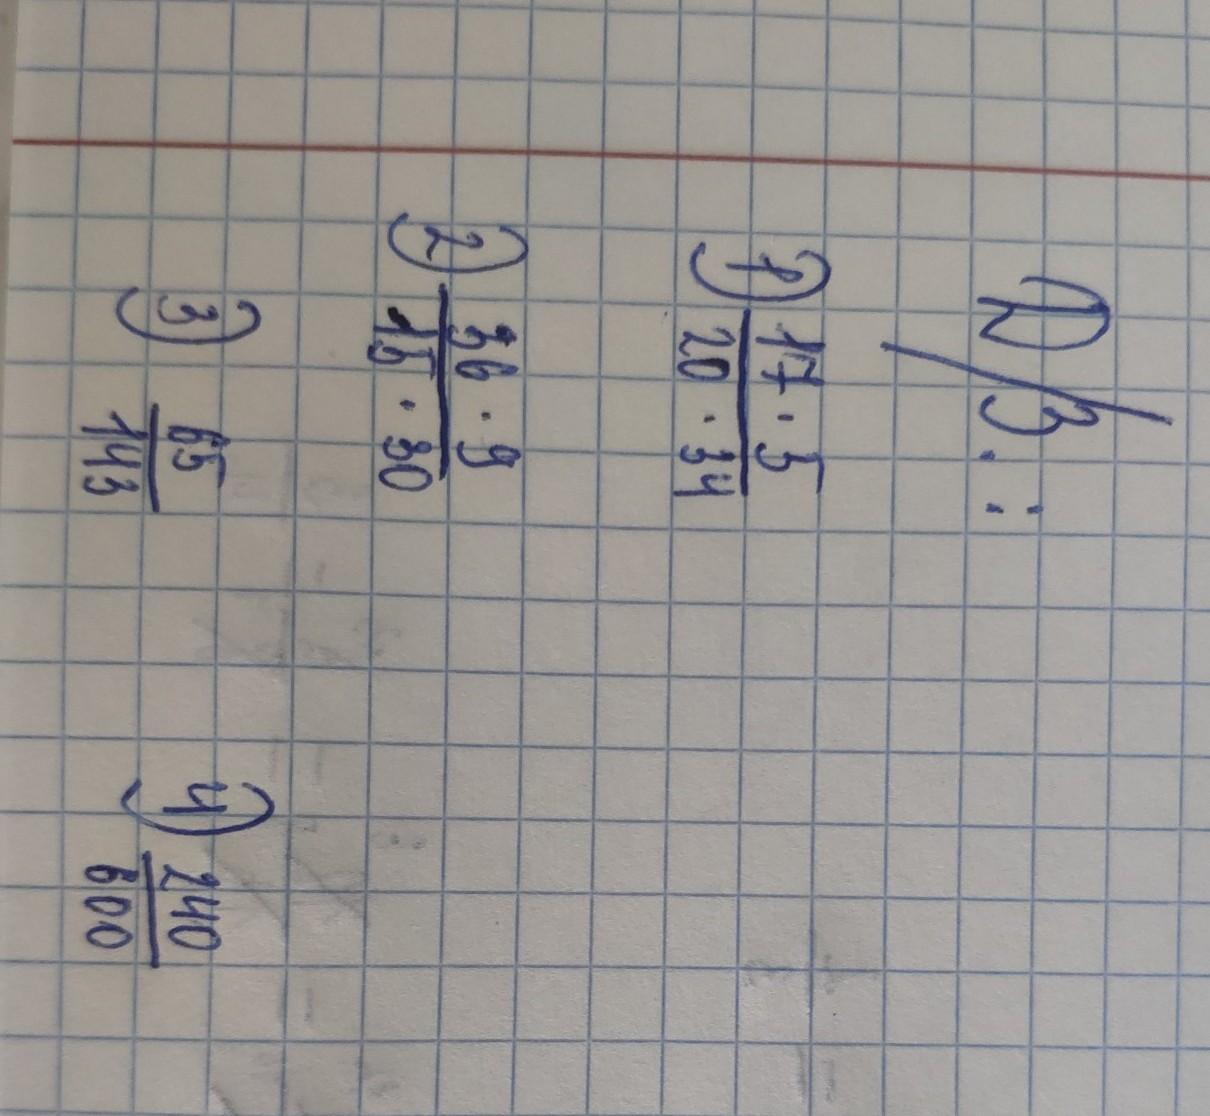 Д/З.:
1) 17 · 5 / 20 · 34
2) 36 · 9 / 15 · 30
3) 65 / 143 4) 240 / 600